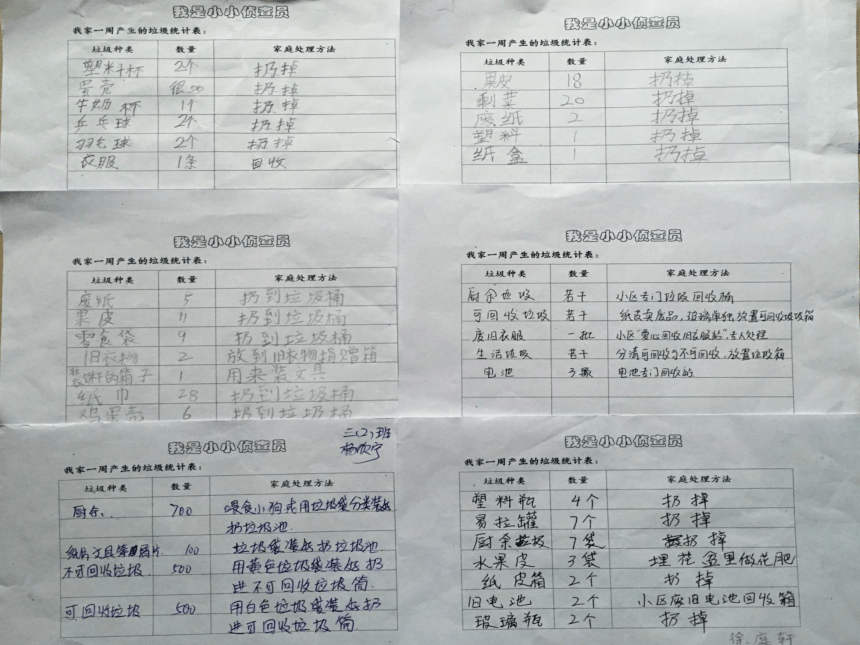 我是小小侦查员
我家一周产生的垃圾统计表：
垃圾种类 数量 家庭处理方法
塑料杯 2个 扔掉
蛋壳 很多 扔掉
牛奶杯 1个 扔掉
乒乓球 2个 扔掉
羽毛球 2个 扔掉
衣服 1条 回收
我是小小侦查员
我家一周产生的垃圾统计表：
垃圾种类 数量 家庭处理方法
果皮 18 扔掉
剩菜 20 扔掉
废纸 2 扔掉
塑料 1 扔掉
纸盒 1 扔掉
我是小小侦查员
我家一周产生的垃圾统计表：
垃圾种类 数量 家庭处理方法
废纸 5 扔到垃圾桶
果皮 11 扔到垃圾桶
零食袋 9 扔到垃圾桶
旧衣物 2 放到旧衣物捐赠箱
装饼的箱子 1 用来装文具
纸巾 28 扔到垃圾桶
鸡蛋壳 6 扔到垃圾桶
我是小小侦查员
我家一周产生的垃圾统计表：
垃圾种类 数量 家庭处理方法
厨余垃圾 若干 小区专门垃圾回收桶
可回收垃圾 若干 纸皮卖废品，垃圾单独放置可回收垃圾箱
废旧衣服 一批 小区“爱心回收旧衣服站”，专人处理
生活垃圾 若干 分清可回收与不可回收，放置垃圾箱
电池 3 电池专门回收的
三(2)班
我是小小侦查员
我家一周产生的垃圾统计表：
垃圾种类 数量 家庭处理方法
厨余、 700 喂食小狗或用垃圾袋分类装好
扔垃圾池.
纸屑文具等 100 垃圾袋装好扔垃圾池.
不可回收垃圾 500 用黄色垃圾袋装好扔
进不可回收垃圾筒.
可回收垃圾 500 用白色垃圾袋装好扔
进可回收垃圾筒
我是小小侦查员
我家一周产生的垃圾统计表：
垃圾种类 数量 家庭处理方法
塑料瓶 4个 扔掉
易拉罐 7个 扔掉
厨余垃圾 7袋 扔掉
水果皮 3袋 埋花盆里做花肥
纸皮箱 2个 扔掉
旧电池 2个 小区废旧电池回收箱
玻璃瓶 2个 扔掉
徐庭轩